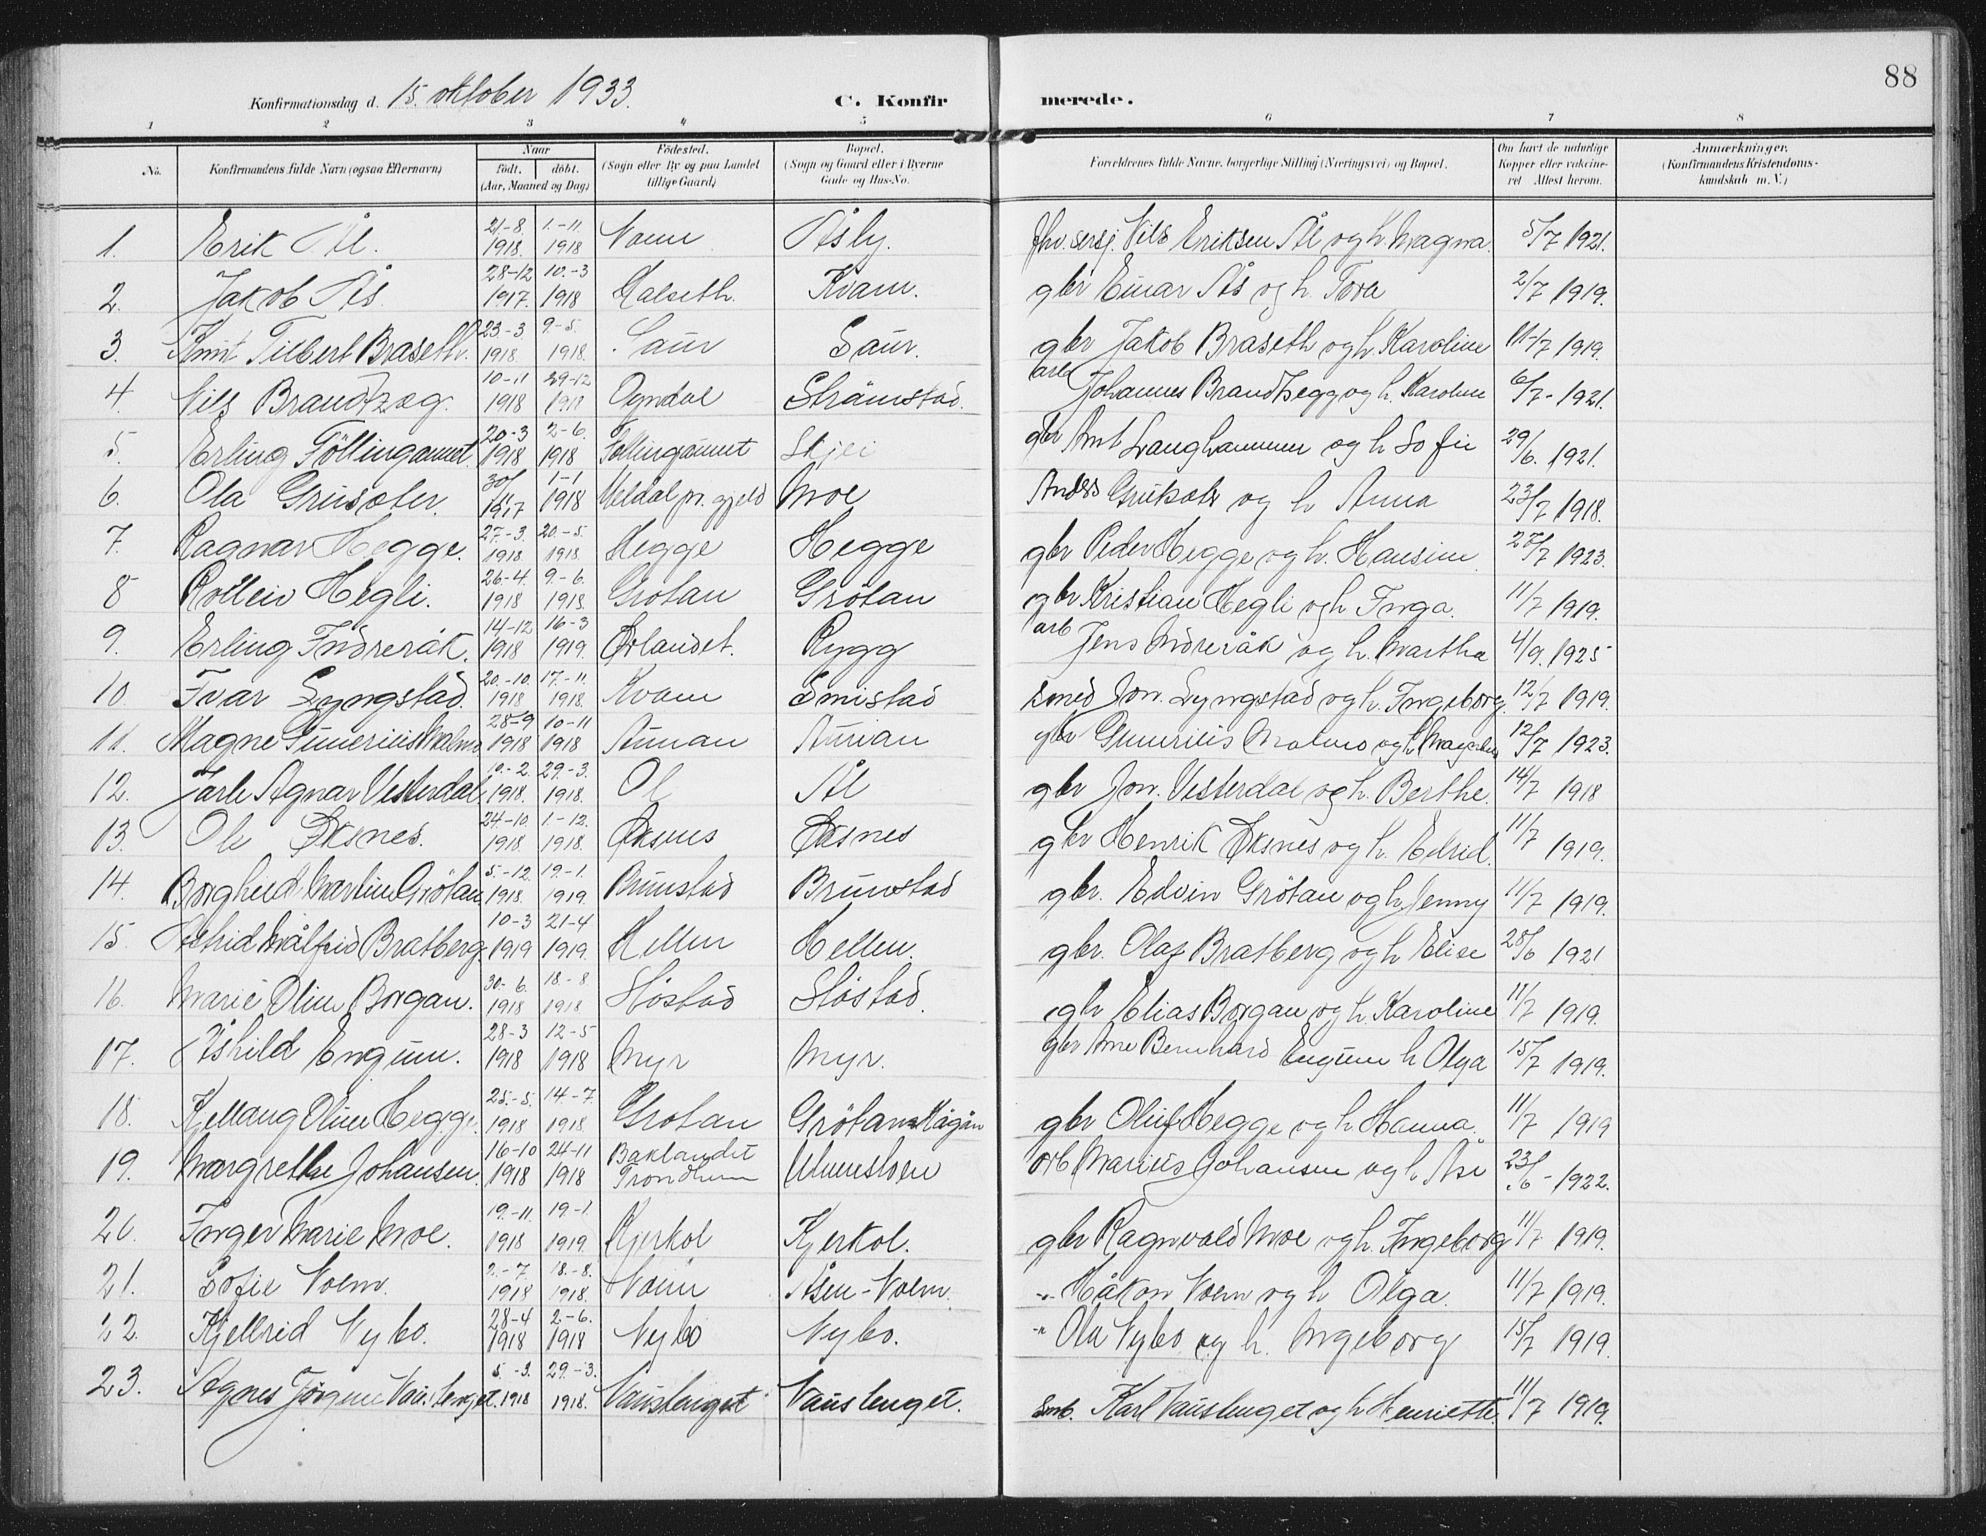 88
Konfirmationsdag d. 15 oktober 1933. C. Konfirmerede.
1 2 3 4 5 6 7 8
No. Konfirmandens fulde Navn (ogsaa Efternavn) Naar født. døbt. (Aar, Maaned og Dag) Fødested. (Sogn eller By og paa Landet tillige Gaard) Bopæl. (Sogn og Gaard eller i Byerne Gade og Hus-No. Forældrenes fulde Navne, borgerlige Stilling (Næringsvei) og Bopæl. Om havt de naturlige Kopper eller vaccineret Attest herom. Anmærkninger. (Konfirmandens Kristendomskundskab m. V.)
1. Erik Ål. 21-8. 1918 1.-11. 1918 Åsly. Nils Eriksen Ål og h. Magna. 5/7 1921.
2. Jakob Ås. 28-12 1917. 10.-3 1918 Kvam. gbr Einar Ås og h. Tora 2/7 1919.
3. Tilbert Braseth. 23-3 1918. 9-5. 1918. Saur Saur. gbr Jakob Braseth og h. Karoline 11/7 1919.
4. Nils Brandtzæg. 10-11 1918 29-12 1918 Strømstad. arb Johannes Brandtzegg og h. Karoline 6/7-1921.
5. Erling Föllingaunet. 20-3 1918 2-6. 1918 Föllingaunet Skjei gbr Langhammer og h Sofie 29/6. 1921.
6. Ola Grusæter. 30/11 1917 1-1 1918 Meldal pr. gjeld Moe Anders og h Anna 23/7 1918.
7. Ragnar Hegge. 27.-3. 1918 20.-5. 1918. Hegge Hegge gbr Peder Hegge og h. Hansine 1923.
8 Rolleiv Hegli. 26-4. 1918 9.-6. 1918. Grötan Grötan gbr Kristian Hegli og h Inga. 11/7 1919.
9. Erling Indreråk. 14-12 1918 16-3 1919. Ørlandet. Rygg arb Jens Indreråk og h. Martha 4/9. 1925
10. Ivar Lyngstad. 20.-10. 1918 17.-11. 1918. Kvam Smistad smed Jon. Lyngstad og h. Ingeborg. 12/7 1919.
11. Magne Gunerius Malmo 28-9 1918 10-11 1918 Aunan Aunan gbr Gunerius Malmo og h. 12/7 1923.
12. Jarle Agnar Vesterdal. 10.-2. 1918. 29.-3. 1918. Ol Ål gbr Jon. Vesterdal og h. Berthe. 14/7 1918
13. Ole Øksnes. 24-10. 1918. 1.-12. 1918. Øksnes Øksnes gbr Henrik Øksnes og h. 11/7 1919.
14. Borghild Martine Grötan 5.-12. 1918. 19.-1. 1919. Brunstad Brunstad gbr. Edvin Grötan og h. Jenny 11/7 1919.
15. Astrid Målfrid Bratberg. 10-3 1919 21-4 1919. Hellem Hellem. gbr. Olaf Bratberg og h Elise 28/6 1921
16. Marie Oline Borgan. 30.-6. 1918 18.-8. 1918 Støstad Støstad. gbr Elias Borgan og h. Karoline 11/7 1919.
17. Åshild Engum. 28-3 1918 12-5 1918 Myr Myr. gbr Arne Bernhard Engum h Olga 15/7 1919.
18. Kjellaug Oline Hegge. 25.-5. 1918 14-7. 1918 Grötan Grötan gbr Oluf Hegge og h Hanna. 11/7 1919
19. Margrethe Johansen. 16-10 1918 24-11 1918 Baklandet Trondheim arb Marius Johansen og h. Åse 23/6-1922.
20. Inger Marie Moe. 19.-11. 1918 19-1. 1919. Kjerkol Kjerkol. gbr Ragnvald Moe og h. Ingeborg 11/7 1919.
21. Sofie Voem. 2.-7. 1918 18.-8. 1918. Åsen-Voem. -"- Håkon Voem og h Olga. 11/7 1919.
22. Kjellrid Nybo. 28-4 1918 2-6. 1918 Nybo Nybo. -" Ola Nybo og h. Ingeborg 15/7 1919.
23. Agnes Jørgine Vauslenget. 5.-3. 1918 29.-3. 1918. Vauslenget Vauslenget. Smb. Karl Vauslenget og h Henriette. 11/7 1919.